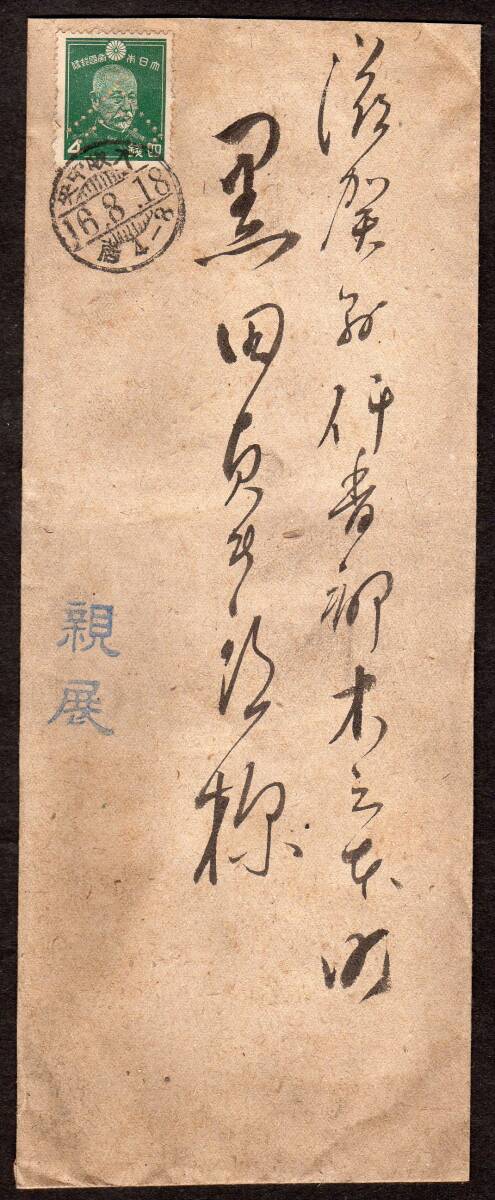 滋賀県伊香郡木之本町
黒田貞
様
大日本帝國郵便
四銭
4
中央
16.8.18
后4-8
親展